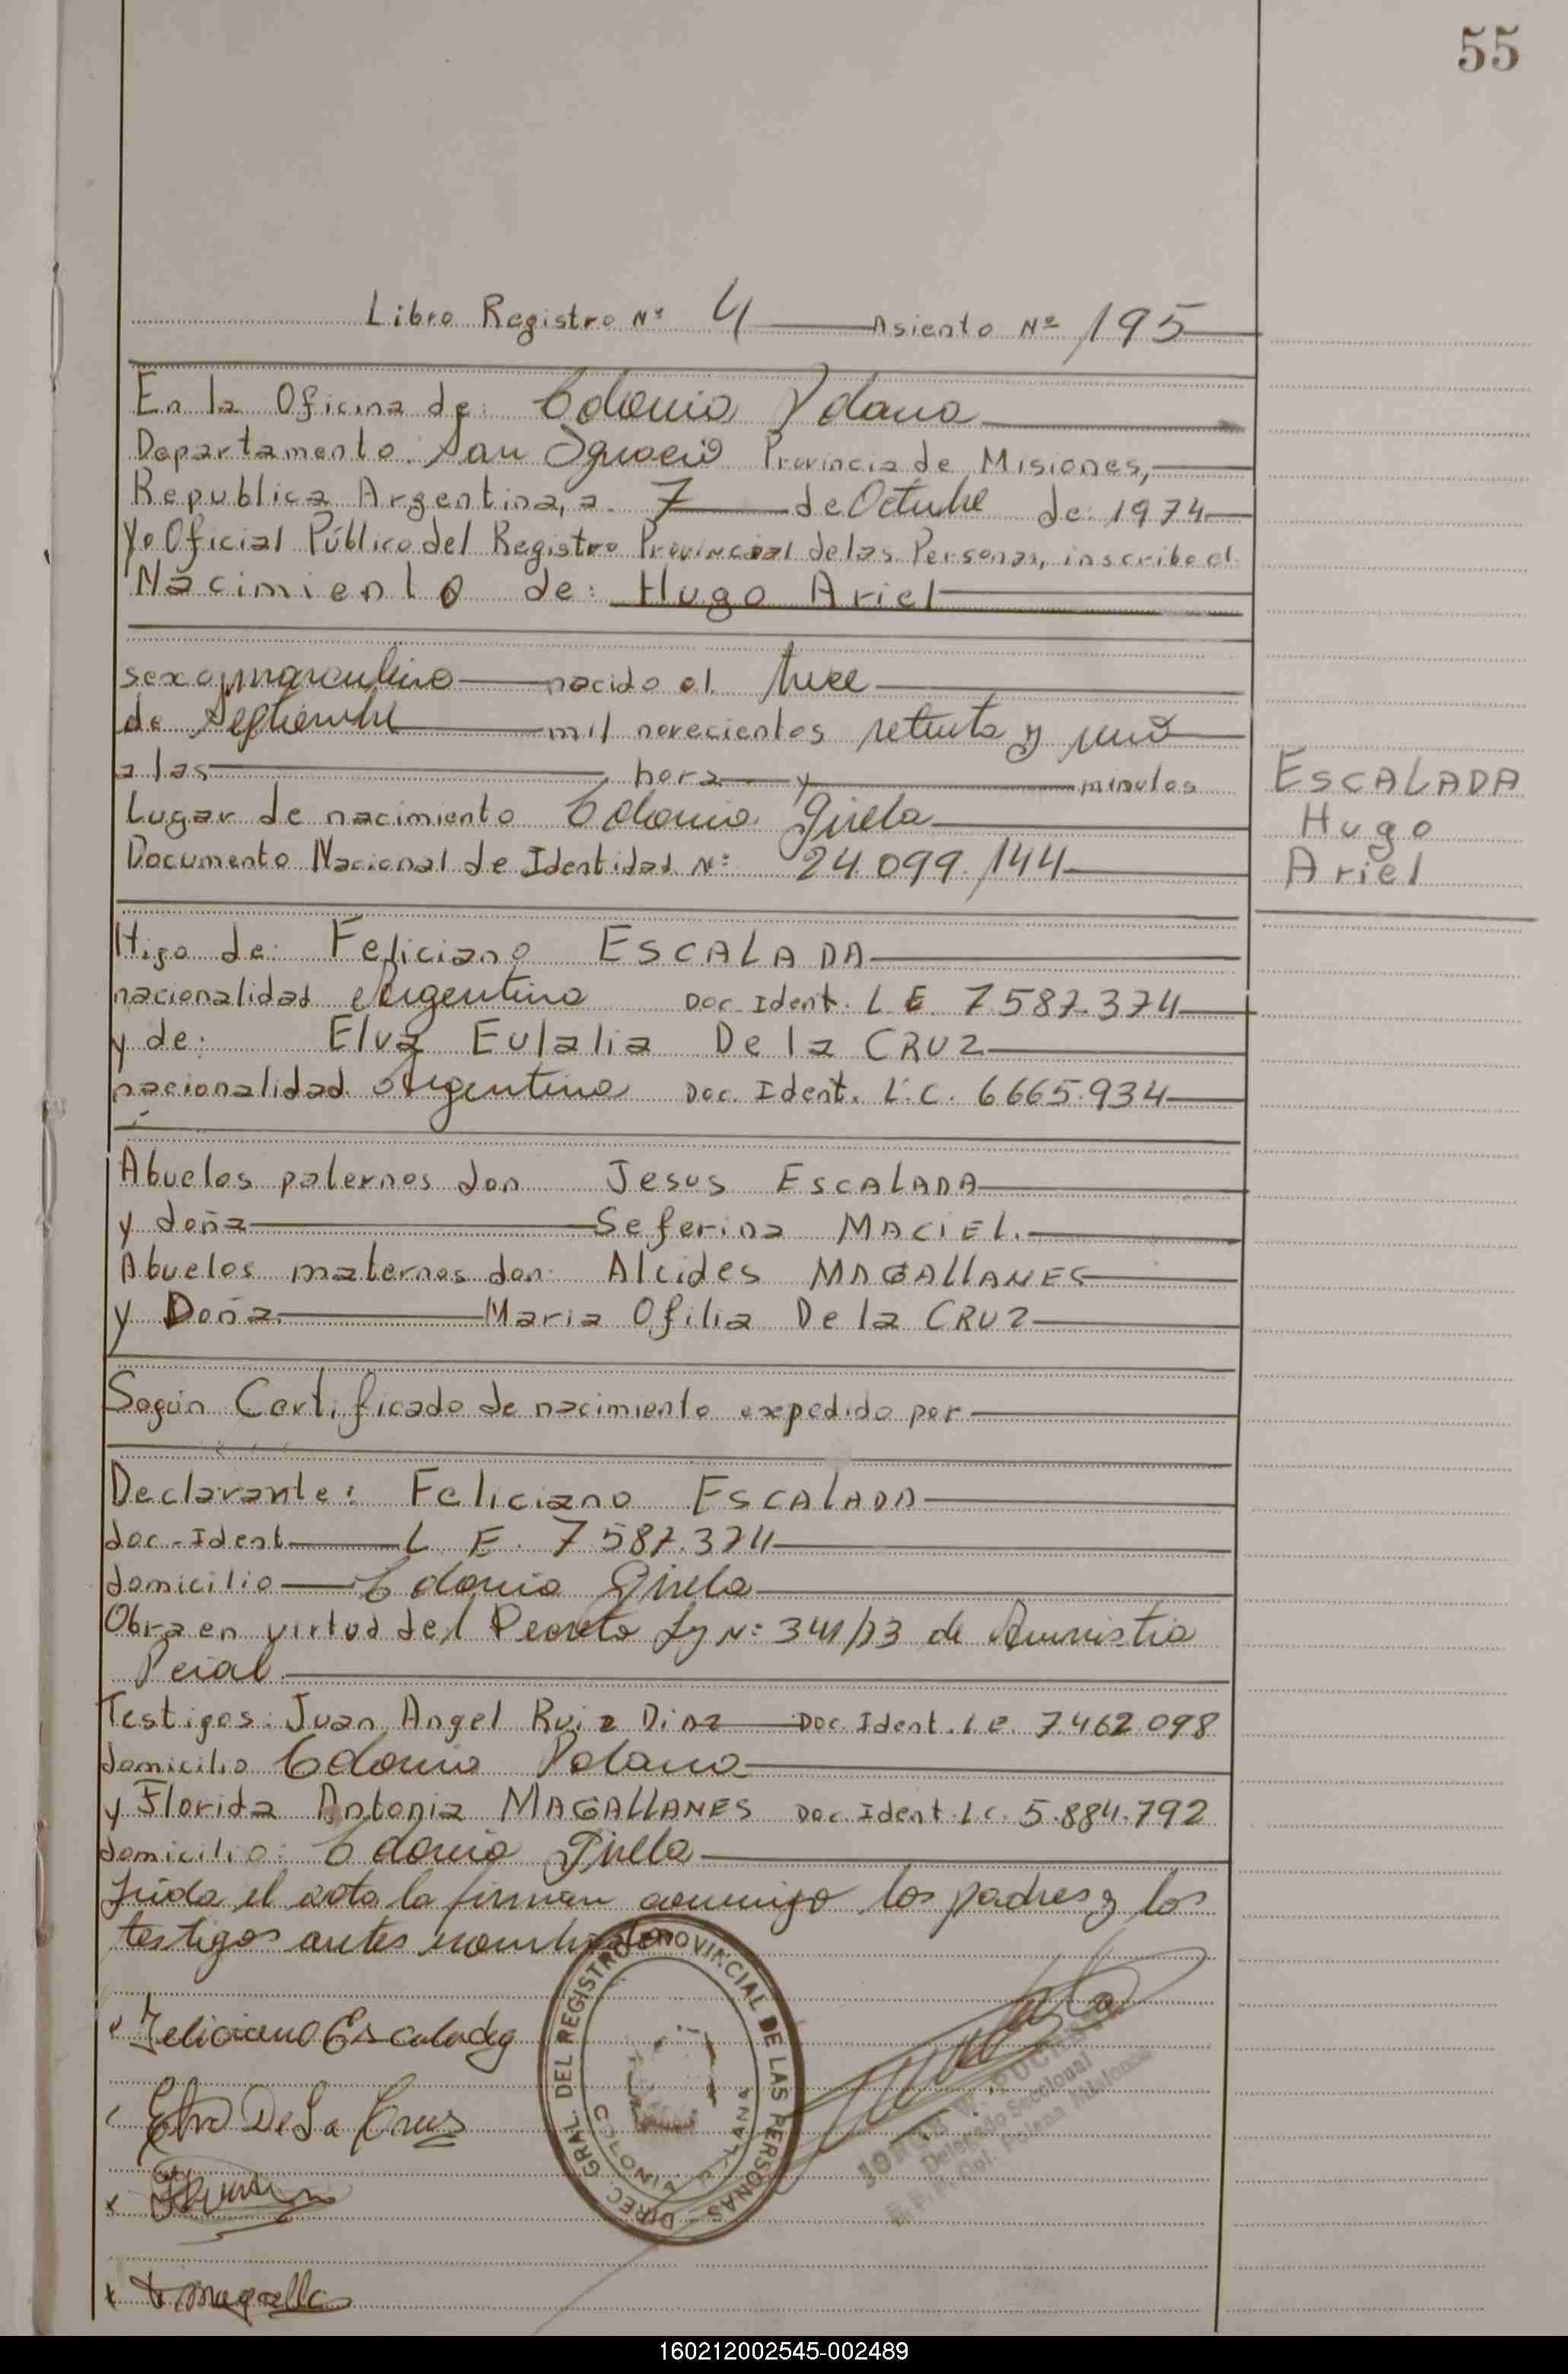 55
Libro Registro Nº 4 Asiento Nº 195
En la Oficina de: Colonia Polana
Departamento: San Ignacio Provincia de Misiones,
Republica Argentina, a 7 de Octubre de 1974
Yo Oficial Público del Registro Provincial de las Personas, inscribo el
Nacimiento de: Hugo Ariel
sexo masculino nacido el trece
de Septiembre mil novecientos setenta y uno
a las hora y minutos
Lugar de nacimiento Colonia Gisela
Documento Nacional de Identidad Nº 24.099.144
ESCALADA
Hugo
Ariel
Hijo de: Feliciano ESCALADA
nacionalidad Argentino Doc. Ident. L.E. 7.587.374
y de: Elva Eulalia De la CRUZ
nacionalidad argentina Doc. Ident. L.C. 6665.934
Abuelos paternos don Jesus ESCALADA
y doña Seferina MACIEL.
Abuelos maternos don: Alcides MAGALLANES
y Doña Maria Ofilia De la CRUZ
Según Certificado de nacimiento expedido por
Declarante: Feliciano ESCALADA
doc-Ident L.E. 7.587.374
domicilio Colonia Gisela
Obra en virtud del Decreto Ley Nº 341/73 de Amnistia
Penal.
Testigos: Juan Angel Ruiz Diaz Doc. Ident. L.E. 7.462.098
domicilio Colonia Polana
y Florida Antonia MAGALLANES Doc. Ident. L.C. 5.884.792
domicilio: Colonia Gisela
Leida el acta la firman conmigo los padres y los
testigos antes nombrados
Feliciano Escalada
Elva De La Cruz
DIREC. GRAL. DEL REGISTRO PROVINCIAL DE LAS PERSONAS
COLONIA POLANA
Delegado Seccional